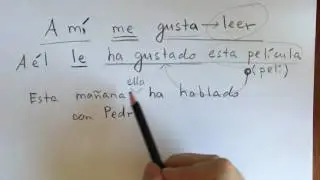 A mí me gusta → leer
A él le ha gustado esta película
(peli)
ella
Esta mañana ha hablado
con Pedr